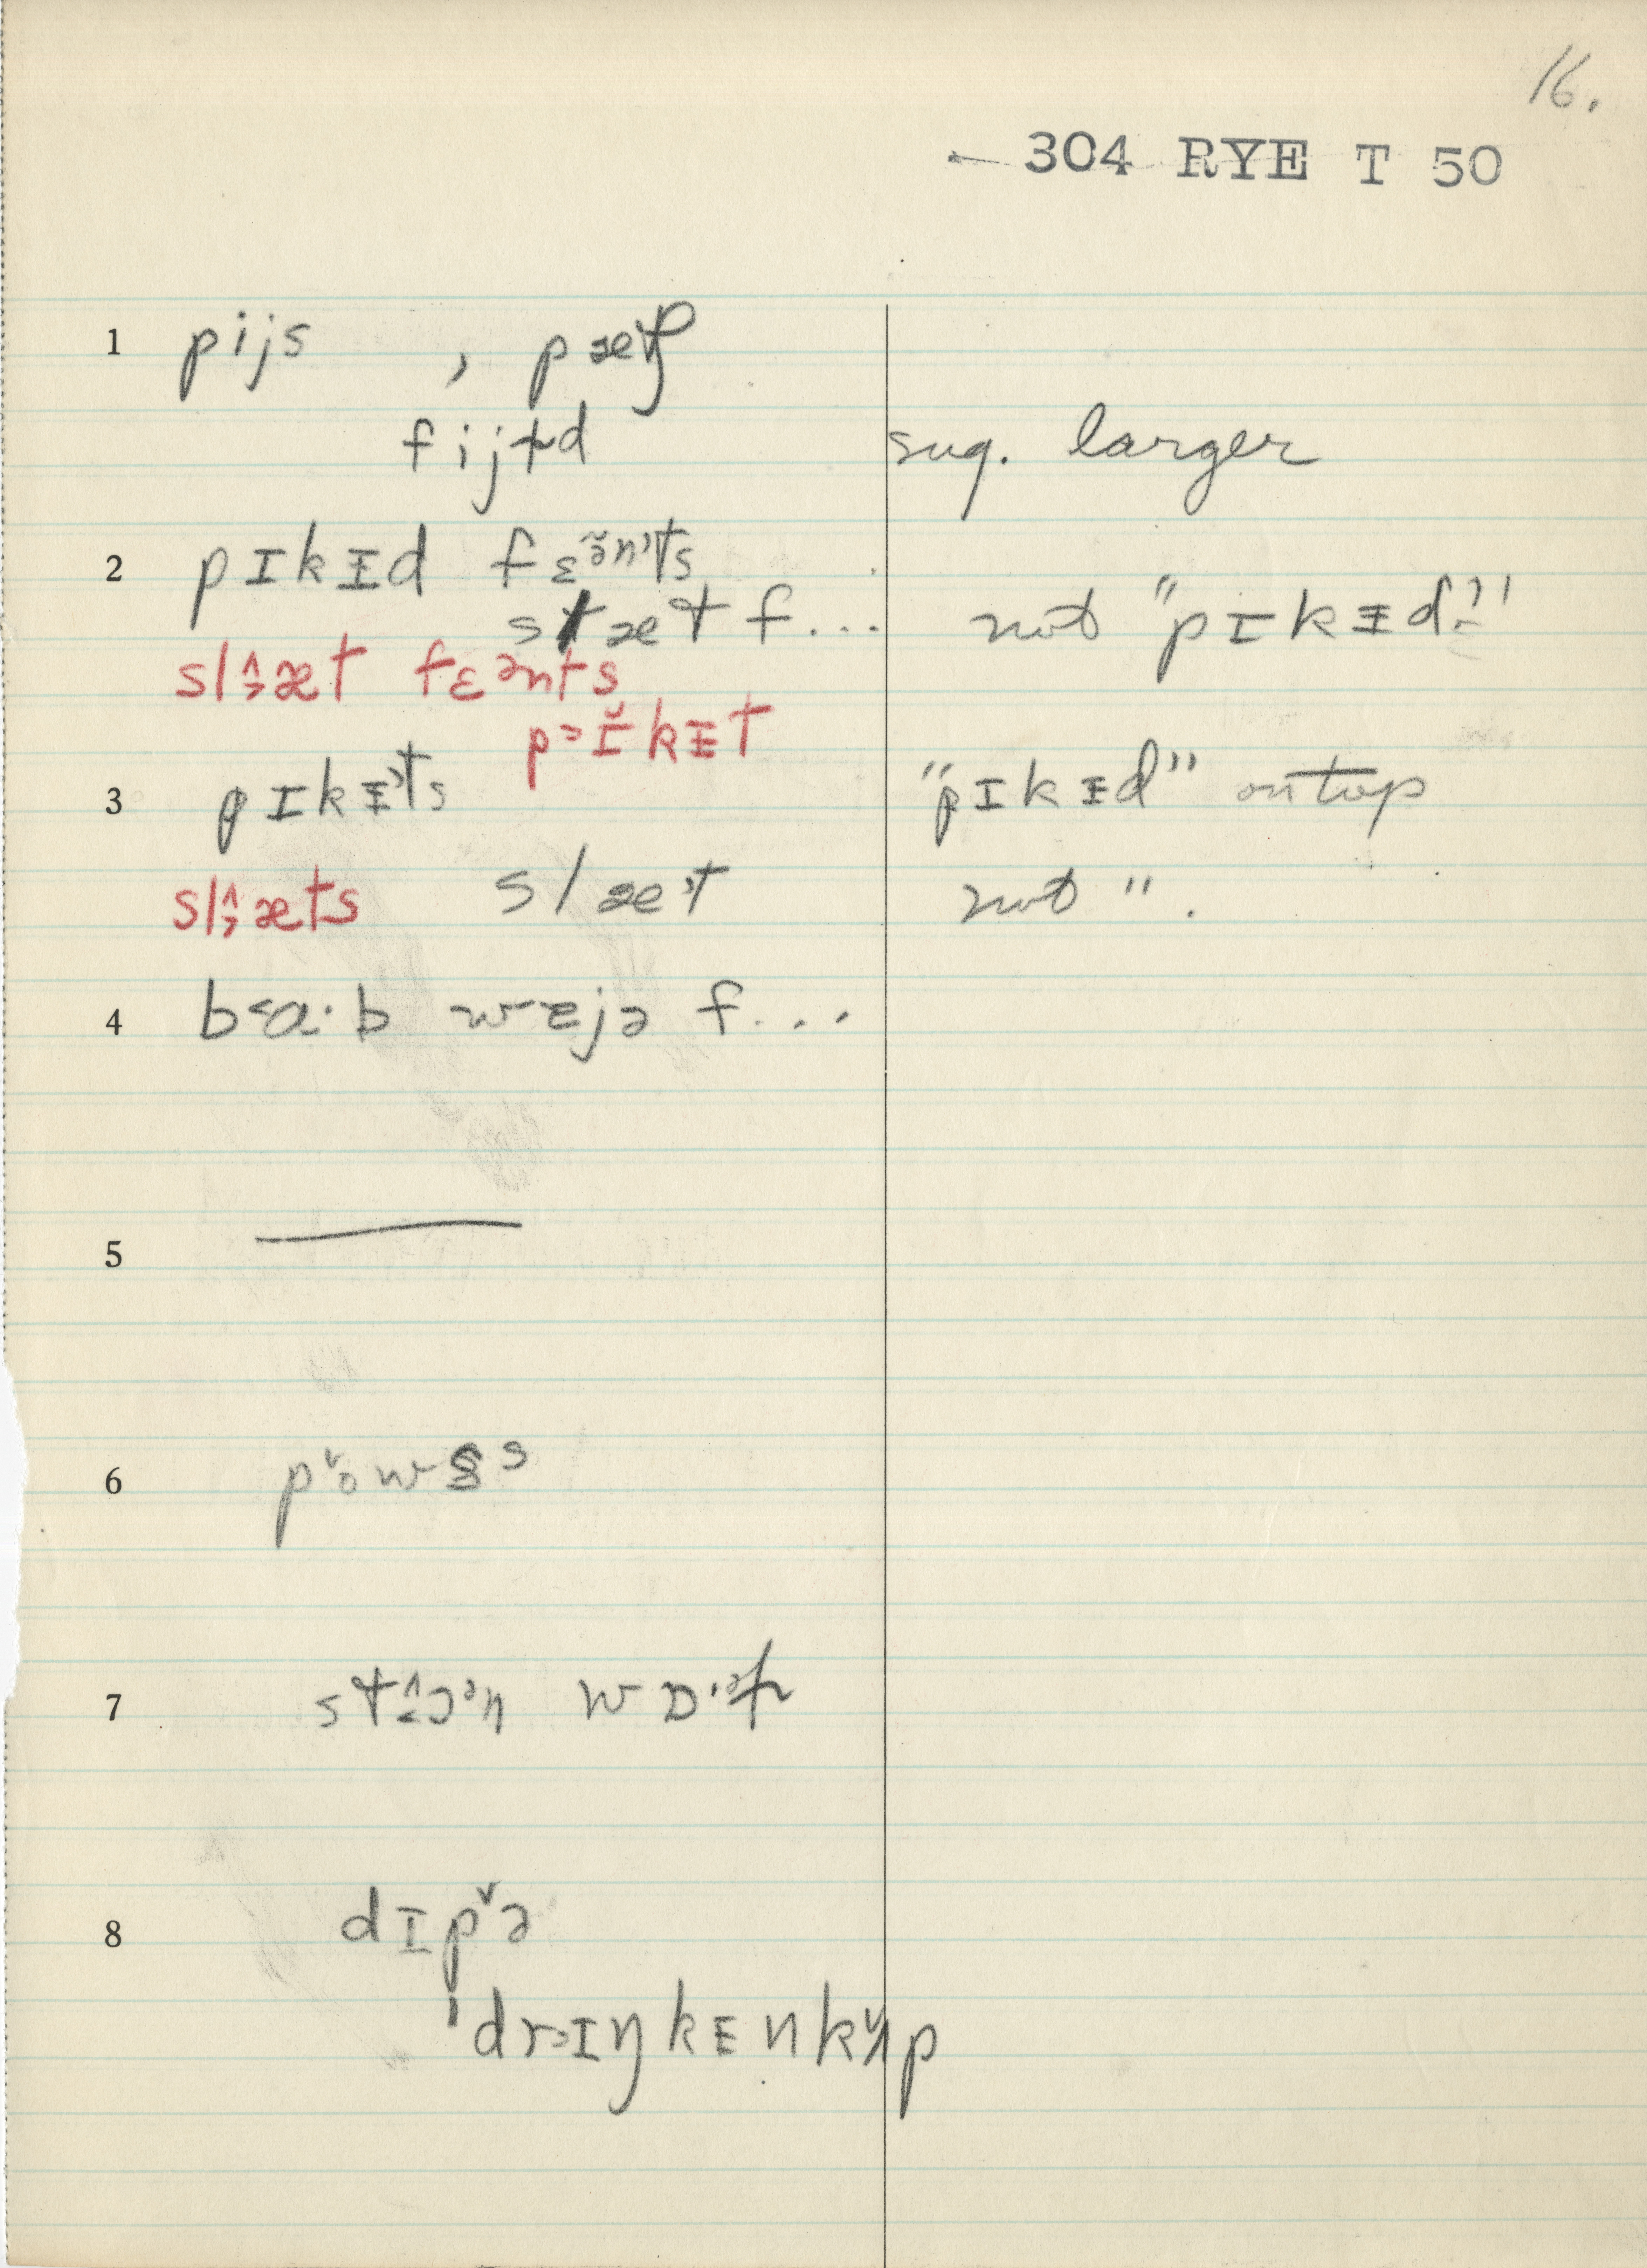 16.
304 RYE T 50
1 pijs , pætʃ
fijɫd sug. larger
2 pɪkᵻd fɛə̃n't's
slæt f... not "pɪkᵻd"
sl˄˃æt fɛənts
p˃ɪ̆kᵻt
3 pɪkᵻ't's "pɪkᵻd" on top
sl˄˃æts slæ't not ".
4 b˂a·b wɛjə f...
5
6 p˅ows s
7 st˄˂ɔᵊn wɒ·ᵊɫ
8 dɪp˅ə
'dr˃ɪŋkᴇnk˅ʌp